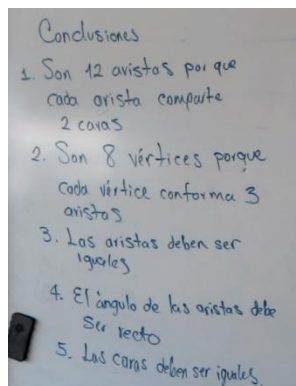 Conclusiones
1. Son 12 aristas por que
cada arista comparte
2 caras
2. Son 8 vértices porque
cada vértice conforma 3
aristas
3. Las aristas deben ser
iguales
4. El ángulo de las aristas debe
Ser recto
5. Las caras deben ser iguales.